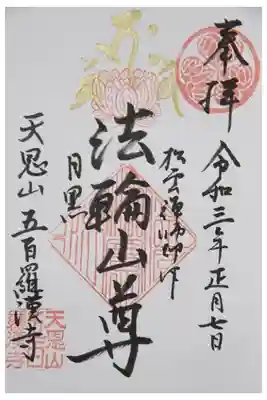 奉拝
令和三年正月七日
松雲禅師作
法輪山尊
目黒
天恩山 五百羅漢寺
天恩山